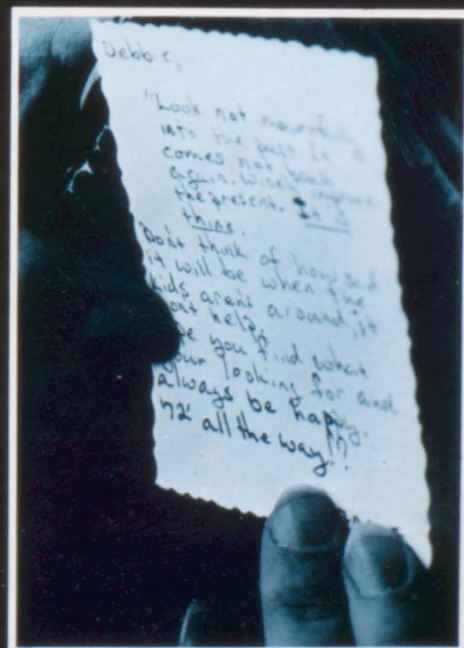 Debbie,
"Look not mournfully
into the past. It
comes not back
again. Wisely improve
the present. It is
thine.
Dont think of how sad
it will be when the
kids arent around, it
ont help.
e you find what
your looking for and
always be happy.
'72' all the way!!